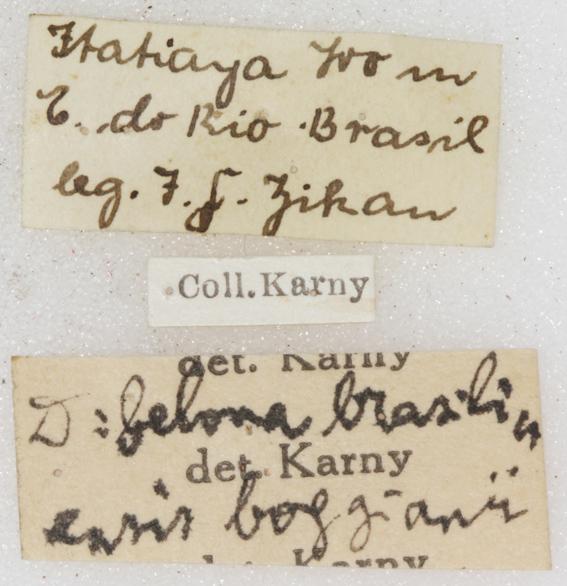 Itatiaya 700 m
E. do Rio Brasil
leg. J. F. Zikan
Coll. Karny
det. Karny
D: belona brasili
det. Karny
ensis boggianii
det. Karny